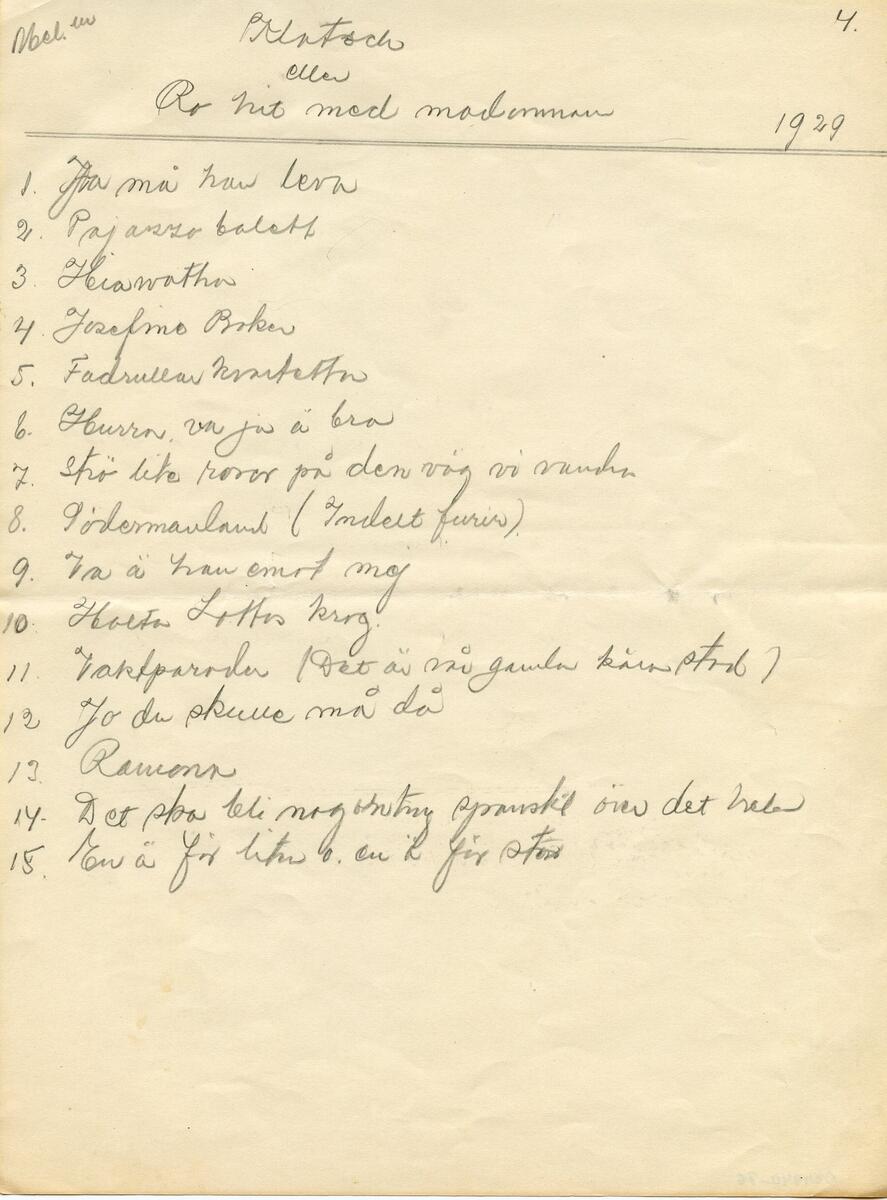 4.
Klatsch
eller
Ro hit med madamman
1929
1. Ja må han leva
2. Pajazzo balett
3. Heiawatha
4. Josefine Baker
5. Fadrullan kvartetten
6. Hurra, va ja ä bra
7. Strö lite rosor på den väg vi vandra
8. Södermanland (Indelt furir)
9. Va ä han emot mej
10. Halta Lottas krog.
11. Vaktparaden (Det är vår gamla kära stad)
12 Jo du skulle må då
13. Ramona
14. Det ska bli nogonting spanskt över det hela
15. En ä för liten o. en ä för stor